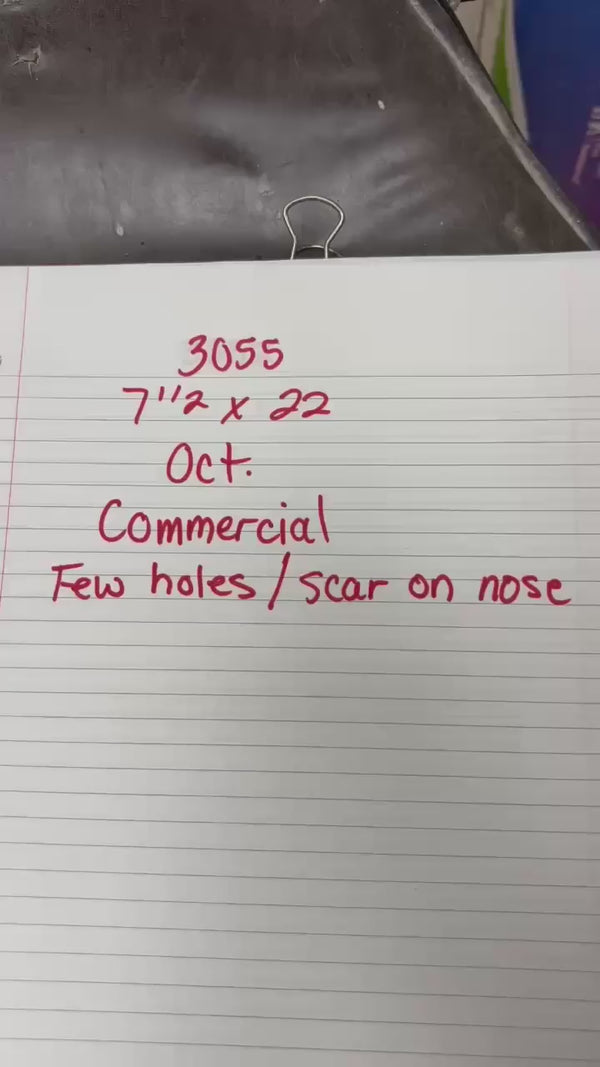 3055
7 1/2 x 22
Oct.
Commercial
Few holes / scar on nose